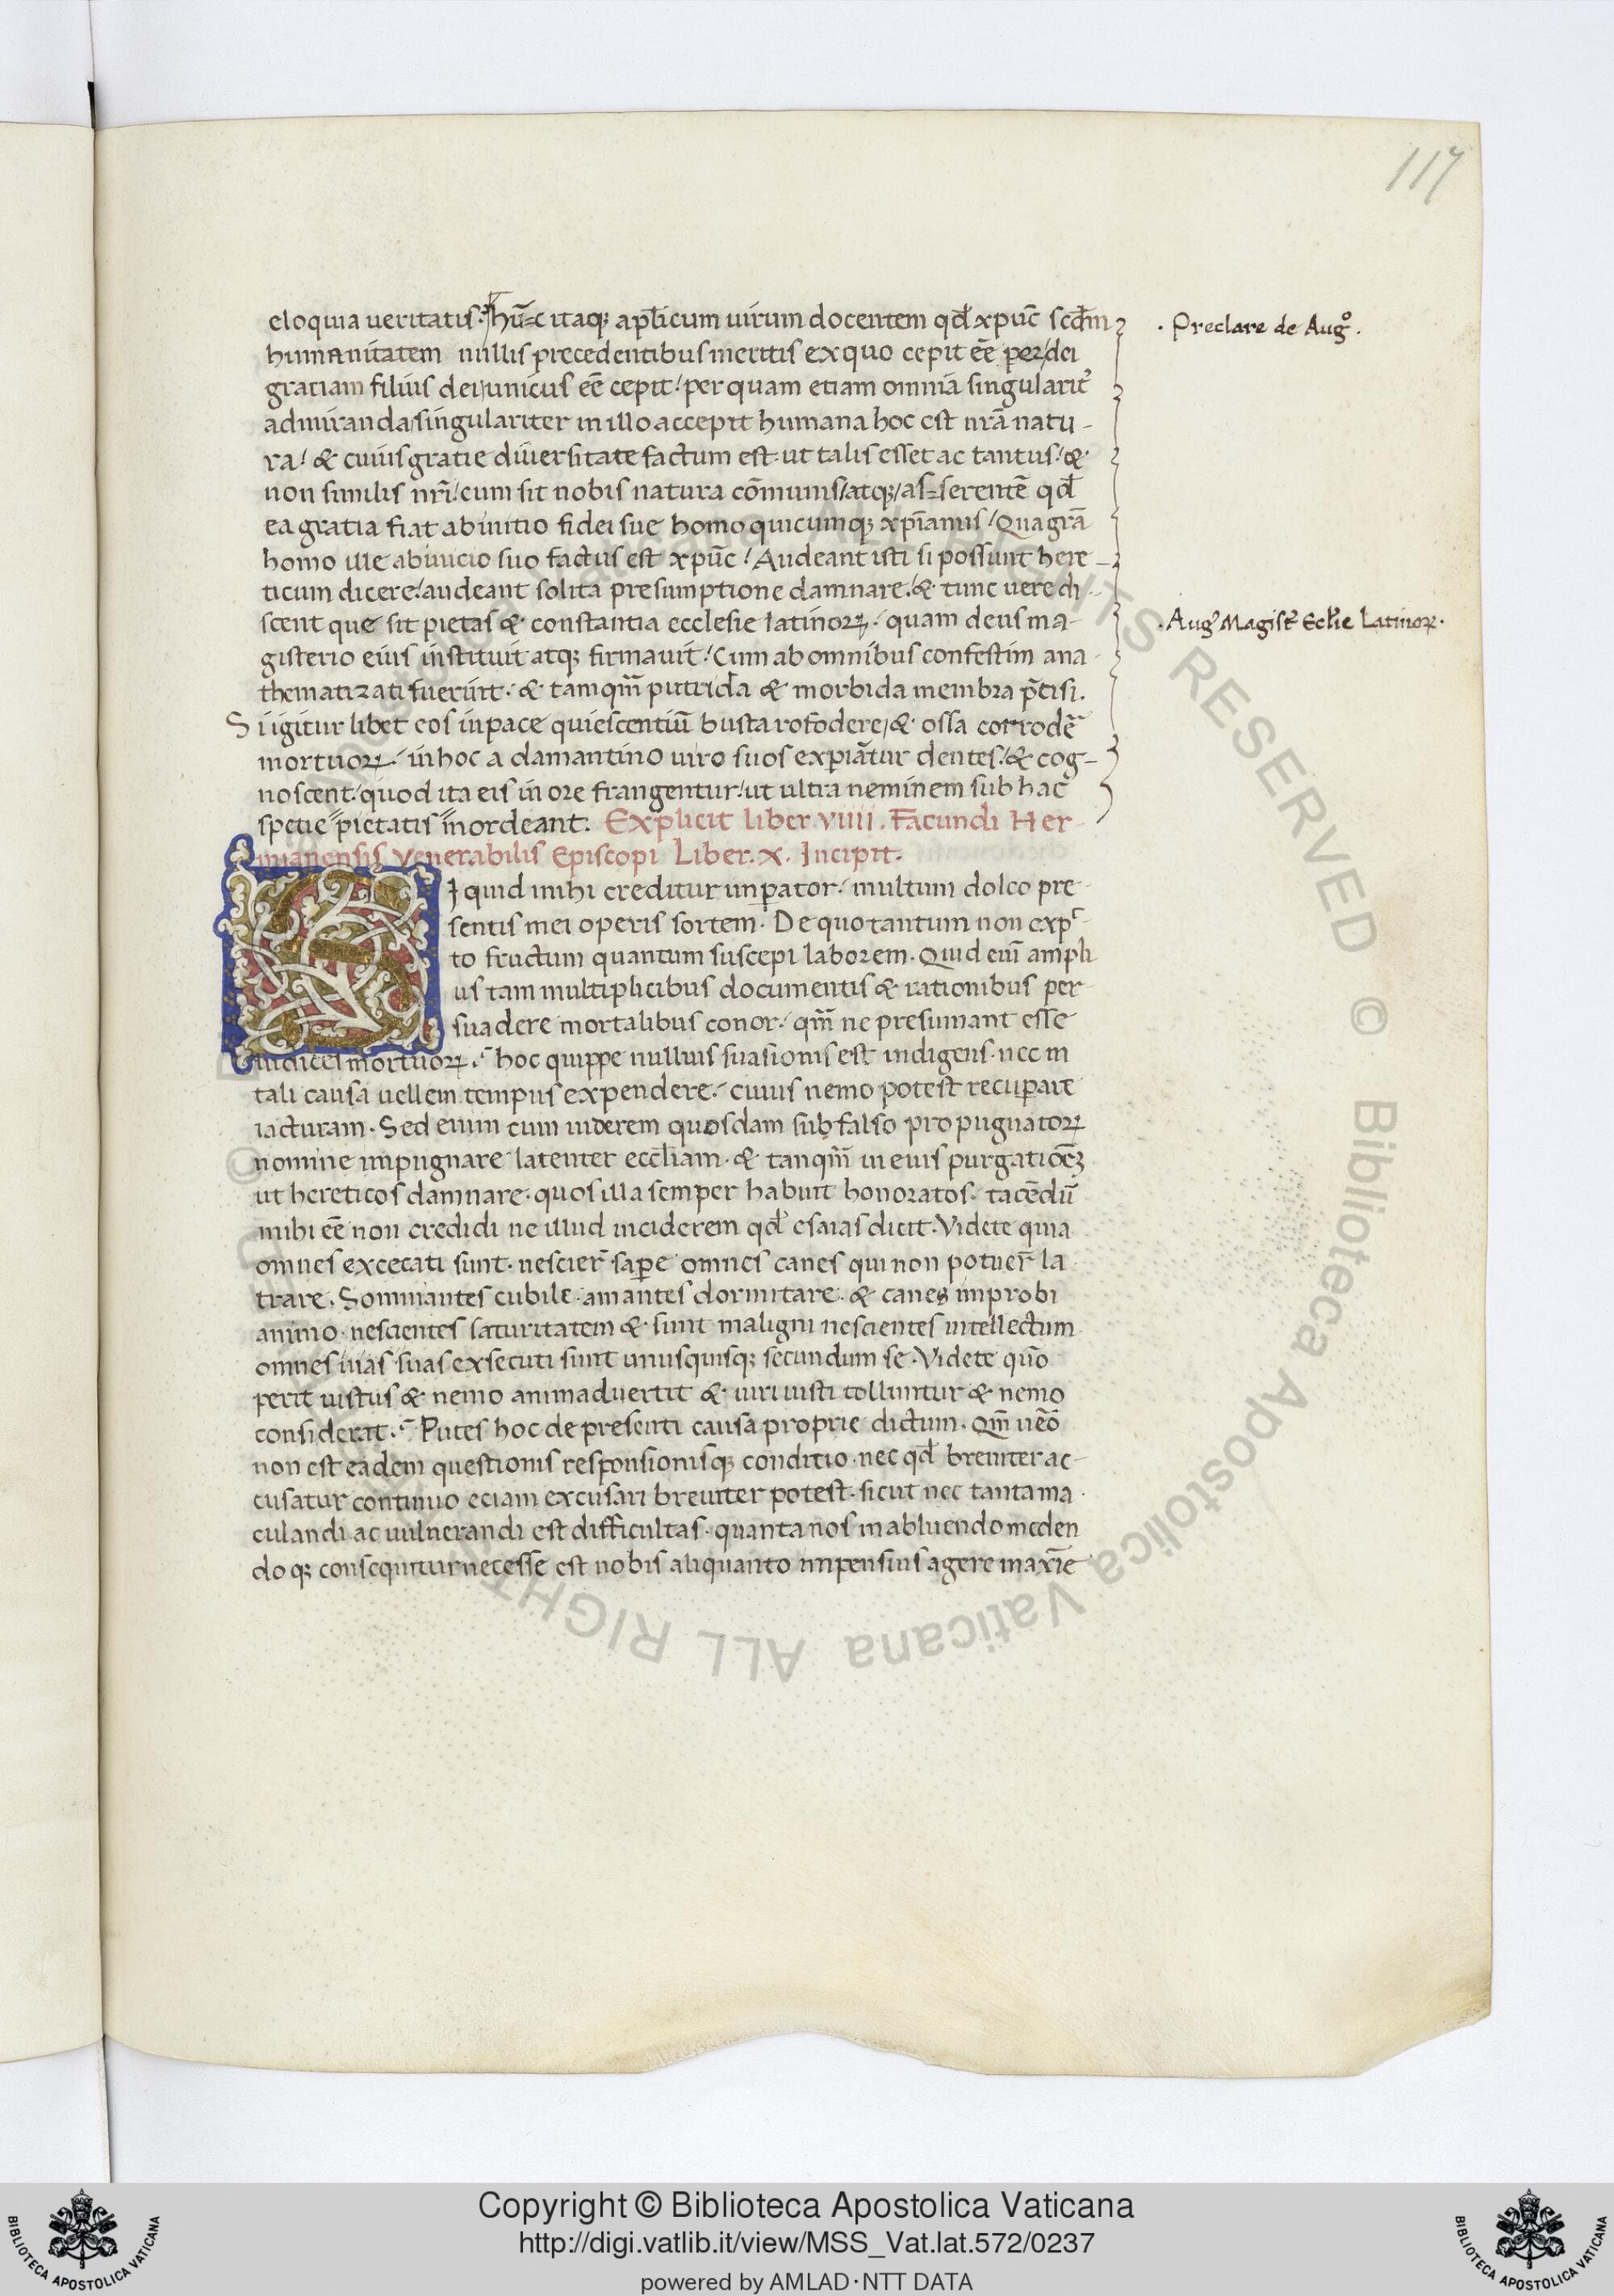 117
eloquia ueritatis. hūc itaq; apłicum uirum docentem qđ xpūc scđm
humanitatem nullis precedentibus meritis ex quo cepit eē per dei
gratiam filius dei unicus eē cepit / per quam etiam omnia singularit̉
admiranda singulariter in illo accepit humana hoc est nrā natu-
ra / & cuius gratie diuersitate factum est ut talis esset ac tantus / &
non similis nrī / cum sit nobis natura cōmunis / atq; as=serentē qđ
ea gratia fiat ab initio fidei sue homo quicumq; xp̄ianus / Qua grā
homo ille ab inicio suo factus est xpūc / Audeant isti si possunt here-
ticum dicere / audeant solita presumptione damnare / & tunc uere di-
scent que sit pietas & constantia ecclesie latinoꝝ / quam deus ma-
gisterio eius instituit atq; firmauit / Cum ab omnibus confestim ana-
thematizati fuerint. & tamqm̄ putrida & morbida membra p̄cisi.
Si igitur libet eos in pace quiescentiū busta rofodere / & ossa corrodē
mortuoꝝ / in hoc a damantino uiro suos expiāt̄ur dentes / & cog-
noscent / quod ita eis in ore frangentur / ut ultra neminem sub hac
spetie pietatis mordeant. Explicit liber. viiii. Facundi Her-
mianensis venerabilis Episcopi Liber. x. Incipit.
SI quid mihi creditur imꝑator / multum doleo pre-
sentis mei operis sortem. De quo tantum non expc̄-
to fructum quantum suscepi laborem. Quid eni ampli
us tam multiplicibus documentis & rationibus per-
suadere mortalibus conor / qm̄ ne presumant esse
iudices mortuoꝝ. hoc quippe nullius suasionis est indigens. nec in
tali causa uellem tempus expendere / cuius nemo potest recuꝑare
iacturam. Sed enim cum uiderem quosdam sub falso propugnatoꝝ
nomine impugnare latenter eccłiam. & tanqm̄ in eius purgatiōeꝫ
ut hereticos damnare. quos illa semper habuit honoratos. tacēdū
mihi eē non credidi ne illud inciderem qđ esaias dicit. Videte quia
omnes excecati sunt. nescier̄ saꝑe omnes canes qui non potuer̄ la
trare. Somniantes cubile amantes dormitare. & canes improbi
animo nescientes saturitatem & sunt maligni nescientes intellectum
omnes uias suas exsecuti sunt unusquisq; secundum se. Videte quō
perit iustus & nemo animaduertit & uiri iusti tolluntur & nemo
considerat. Putes hoc de presenti causa proprie dictum. Qm̄ ueō
non est eadem questionis responsionisq; conditio. nec qđ breuiter ac-
cusatur continuo eciam excusari breuiter potest. sicut nec tanta ma-
culandi ac uulnerandi est difficultas. quanta nos in abluendo meden
doq; consequitur necesse est nobis aliquanto impensius agere maxīe
. Preclare de Augo.
. Aug Magist̉ Ecłie Latinoꝝ.
Copyright © Biblioteca Apostolica Vaticana
http://digi.vatlib.it/view/MSS_Vat.lat.572/0237
powered by AMLAD·NTT DATA
BIBLIOTECA APOSTOLICA VATICANA
BIBLIOTECA APOSTOLICA VATICANA